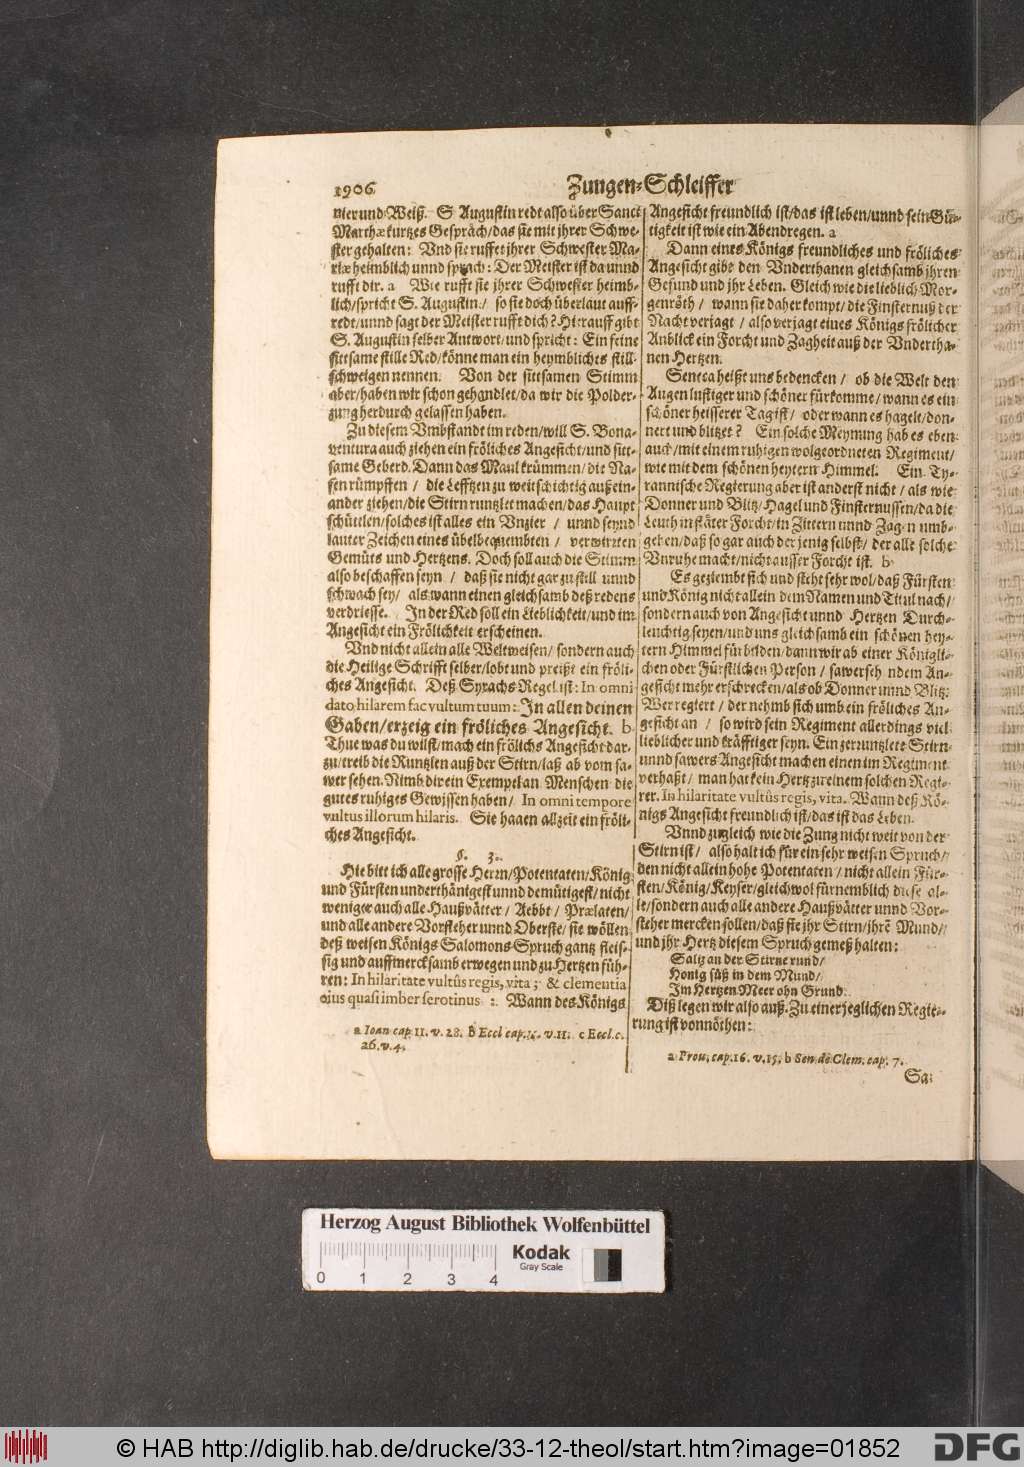 1906 Zungen-Schleiffer
nier und Weiß. S Augustin redt also über Sanct
Marthæ kurtzes Gespräch/das sie mit jhrer Schwe-
ster gehalten: Vnd sie ruffet jhrer Schwester Ma-
riæ heimblich unnd sprach: Der Meister ist da unnd
rufft dir. a Wie rufft sie jhrer Schwester heimb-
lich/spricht S. Augustin/ so sie doch überlaut auff-
redt/unnd sagt der Meister rufft dich? Hierauff gibt
S. Augustin selber Antwort/und spricht: Ein feine
sittsame stille Red/könne man ein heymbliches still-
schweigen nennen. Von der sittsamen Stimm
aber/haben wir schon gehandlet/da wir die Polder-
zung herdurch gelassen haben.
Zu diesem Vmbstandt im reden/will S. Bona-
ventura auch ziehen ein fröliches Angesicht/und sitt-
same Geberd. Dann das Maul krümmen/die Na-
sen rümpffen / die Lefftzen zu weitschichtig auß ein-
ander ziehen/die Stirn runtzlet machen/das Haupt
schüttlen/solches ist alles ein Vnzier / unnd seynd
lauter Zeichen eines übelbequembten / verwirrten
Gemüts und Hertzens. Doch soll auch die Stimm
also beschaffen seyn / daß sie nicht gar zu still unnd
schwach sey/ als wann einen gleichsamb deß redens
verdriesse. In der Red soll ein Lieblichkeit/und im
Angesicht ein Frölichkeit erscheinen.
Vnd nicht allein alle Weltweisen/ sondern auch
die Heilige Schrifft selber/lobt und preißt ein fröli-
ches Angesicht. Deß Syrachs Regel ist: In omni
dato hilarem fac vultum tuum: In allen deinen
Gaben/erzeig ein fröliches Angesicht. b
Thue was du wilst/mach ein frölichs Angesicht dar-
zu/treib die Runtzlen auß der Stirn/laß ab vom sa-
wer sehen. Nimb dir ein Exempel an Menschen die
gutes ruhiges Gewissen haben/ In omni tempore
vultus illorum hilaris. Sie haaen allzeit ein fröli-
ches Angesicht.
§. 3.
Hie bitt ich alle grosse Herrn/Potentaten/König
und Fürsten underthänigest unnd demütigest/ nicht
weniger auch alle Haußvätter / Aebbt / Prælaten/
und alle andere Vorsteher unnd Oberste/ sie wöllen
deß weisen Königs Salomons Spruch gantz fleis-
sig und auffmercksamb erwegen und zu Hertzen füh-
ren: In hilaritate vultûs regis, vita; & clementia
eius quasi imber serotinus :. Wann des Königs
a Ioan cap 11. v. 28. b Eccl cap. v. 11. c Eccl. c.
26. v. 4.
Angesicht freundlich ist/das ist leben/unnd sein Gü-
tigkeit ist wie ein Abendregen. a
Dann eines Königs freundliches und fröliches
Angesicht gibt den Vnderthanen gleichsamb jhren
Gesund und jhr Leben. Gleich wie die lieblich Mor-
genröth / wann sie daher kompt/die Finsternuß der
Nacht verjagt / also verjagt eines Königs frölicher
Anblick ein Forcht und Zagheit auß der Vndertha-
nen Hertzen.
Seneca heißt uns bedencken / ob die Welt den
Augen lustiger und schöner fürkomme/wann es ein
schöner heisserer Tag ist/ oder wann es hagelt/don-
nert und blitzet? Ein solche Meynung hab es eben
auch/mit einem ruhigen wolgeordneten Regiment/
wie mit dem schönen heytern Himmel. Ein Ty-
rannische Regierung aber ist anderst nicht/als wie
Donner und Blitz/Hagel und Finsternussen/da die
Leuth in stäter Forcht/in Zittern unnd Zagen umb-
gehen/daß so gar auch der jenig selbst/der alle solche
Vnruhe macht/nicht ausser Forcht ist. b
Es geziembt sich und steht sehr wol/daß Fürsten
und König nicht allein dem Namen und Titul nach/
sondern auch von Angesicht unnd Hertzen Durch-
leuchtig seyen/und uns gleichsamb ein schönen hey-
tern Himmel fürbilden/dann wir ab einer Königli-
chen oder Fürstlichen Person / sawersehendem An-
gesicht mehr erschrecken/als ob Donner unnd Blitz.
Wer regiert / der nehmb sich umb ein fröliches An-
gesicht an / so wird sein Regiment allerdings viel
lieblicher und kräfftiger seyn. Ein zerruntzlete Stirn
unnd sawers Angesicht machen einen im Regiment
verhaßt/ man hat kein Hertz zu einem solchen Regie-
rer. In hilaritate vultûs regis, vita. Wann deß Kö-
nigs Angesicht freundlich ist/das ist das Leben.
Vnnd zugleich wie die Zung nicht weit von der
Stirn ist/ also halt ich für ein sehr weisen Spruch/
den nicht allein hohe Potentaten / nicht allein Für-
sten/König/Keyser/gleichwol fürnemblich diese al-
le/sondern auch alle andere Haußvätter unnd Vor-
steher mercken sollen/daß sie jhr Stirn/jhrē Mund/
und jhr Hertz diesem Spruch gemeß halten:
Saltz an der Stirne rund/
Honig süß in dem Mund/
Im Hertzen Meer ohn Grund.
Diß legen wir also auß. Zu einer jeglichen Regie-
rung ist vonnöthen:
a Prou. cap. 16. v. 15. b Sen de Clem. cap. 7.
Sa-
Herzog August Bibliothek Wolfenbüttel
0 1 2 3 4
Kodak
Gray Scale
© HAB http://diglib.hab.de/drucke/33-12-theol/start.htm?image=01852
DFG